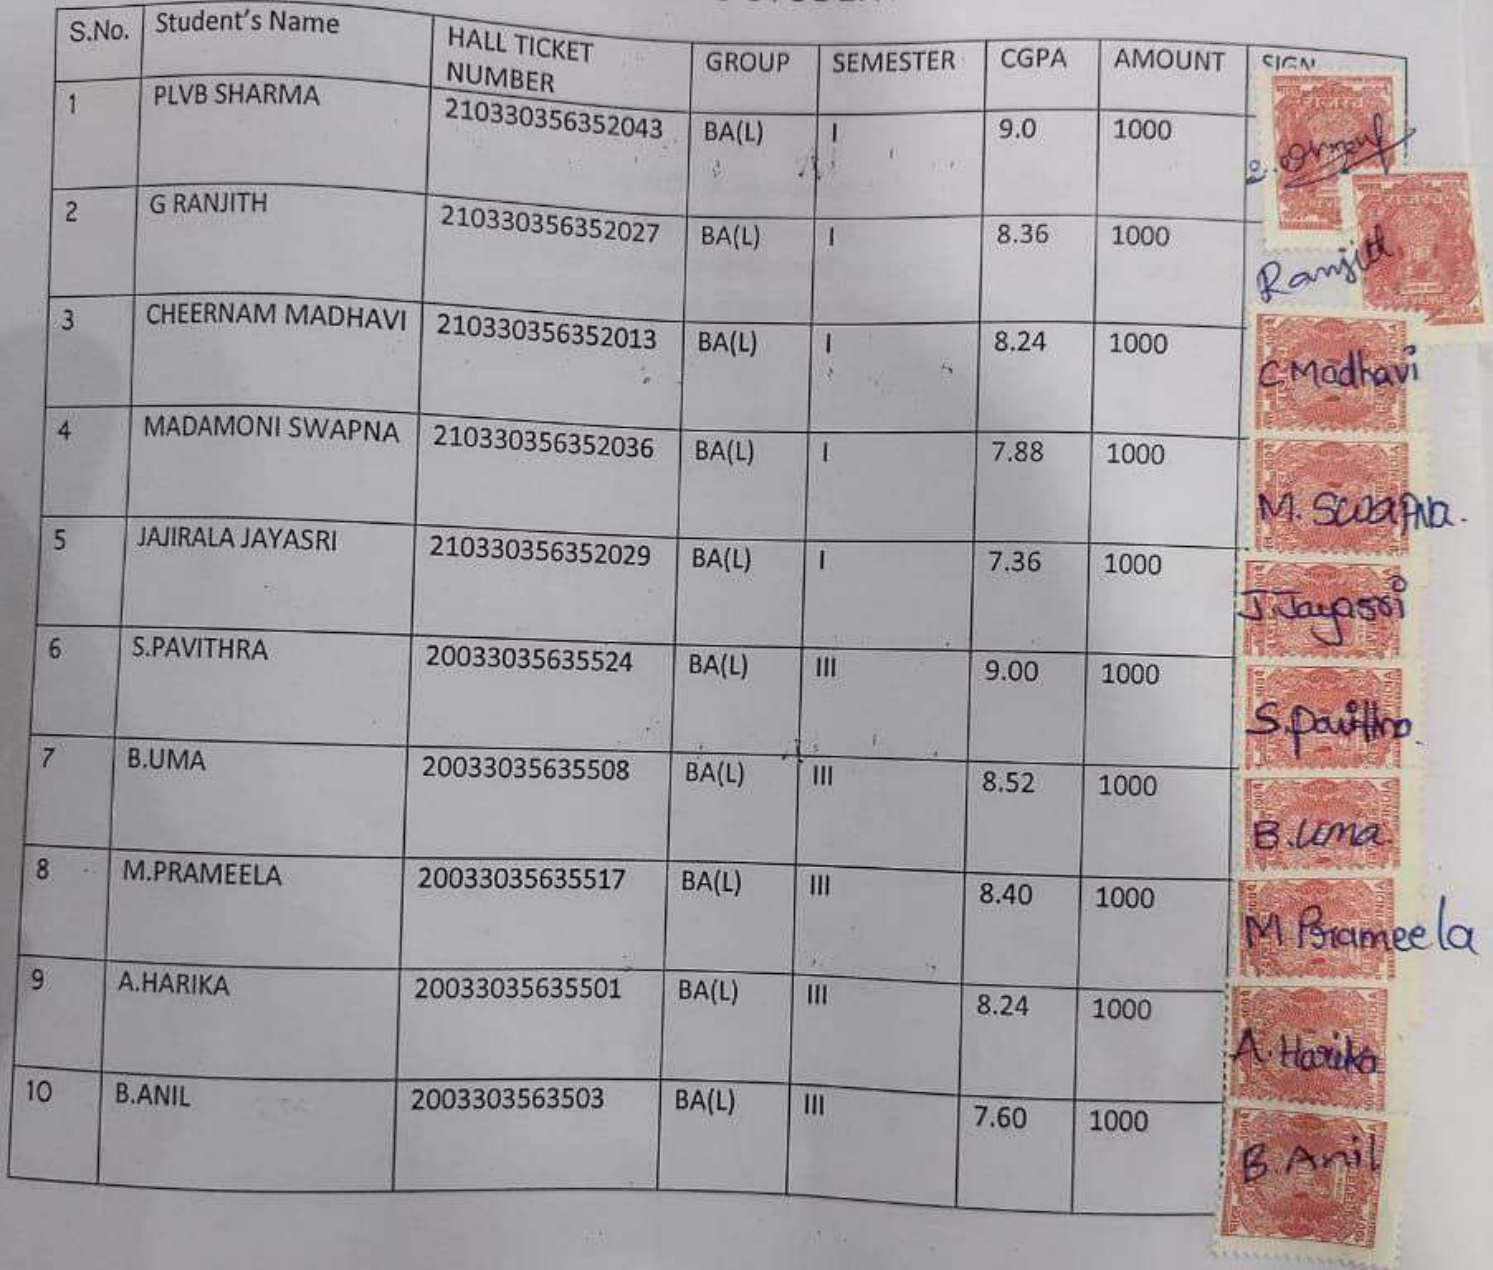 S.No. Student's Name HALL TICKET NUMBER GROUP SEMESTER CGPA AMOUNT SIGN
1 PLVB SHARMA 210330356352043 BA(L) I 9.0 1000
2 G RANJITH 210330356352027 BA(L) I 8.36 1000 Ranjith
3 CHEERNAM MADHAVI 210330356352013 BA(L) I 8.24 1000 C Madhavi
4 MADAMONI SWAPNA 210330356352036 BA(L) I 7.88 1000 M. Swapna.
5 JAJIRALA JAYASRI 210330356352029 BA(L) I 7.36 1000 J.Jayasri
6 S.PAVITHRA 20033035635524 BA(L) III 9.00 1000 S.Pavithra
7 B.UMA 20033035635508 BA(L) III 8.52 1000 B.Uma
8 M.PRAMEELA 20033035635517 BA(L) III 8.40 1000 M Prameela
9 A.HARIKA 20033035635501 BA(L) III 8.24 1000 A.Harika
10 B.ANIL 2003303563503 BA(L) III 7.60 1000 B.Anil